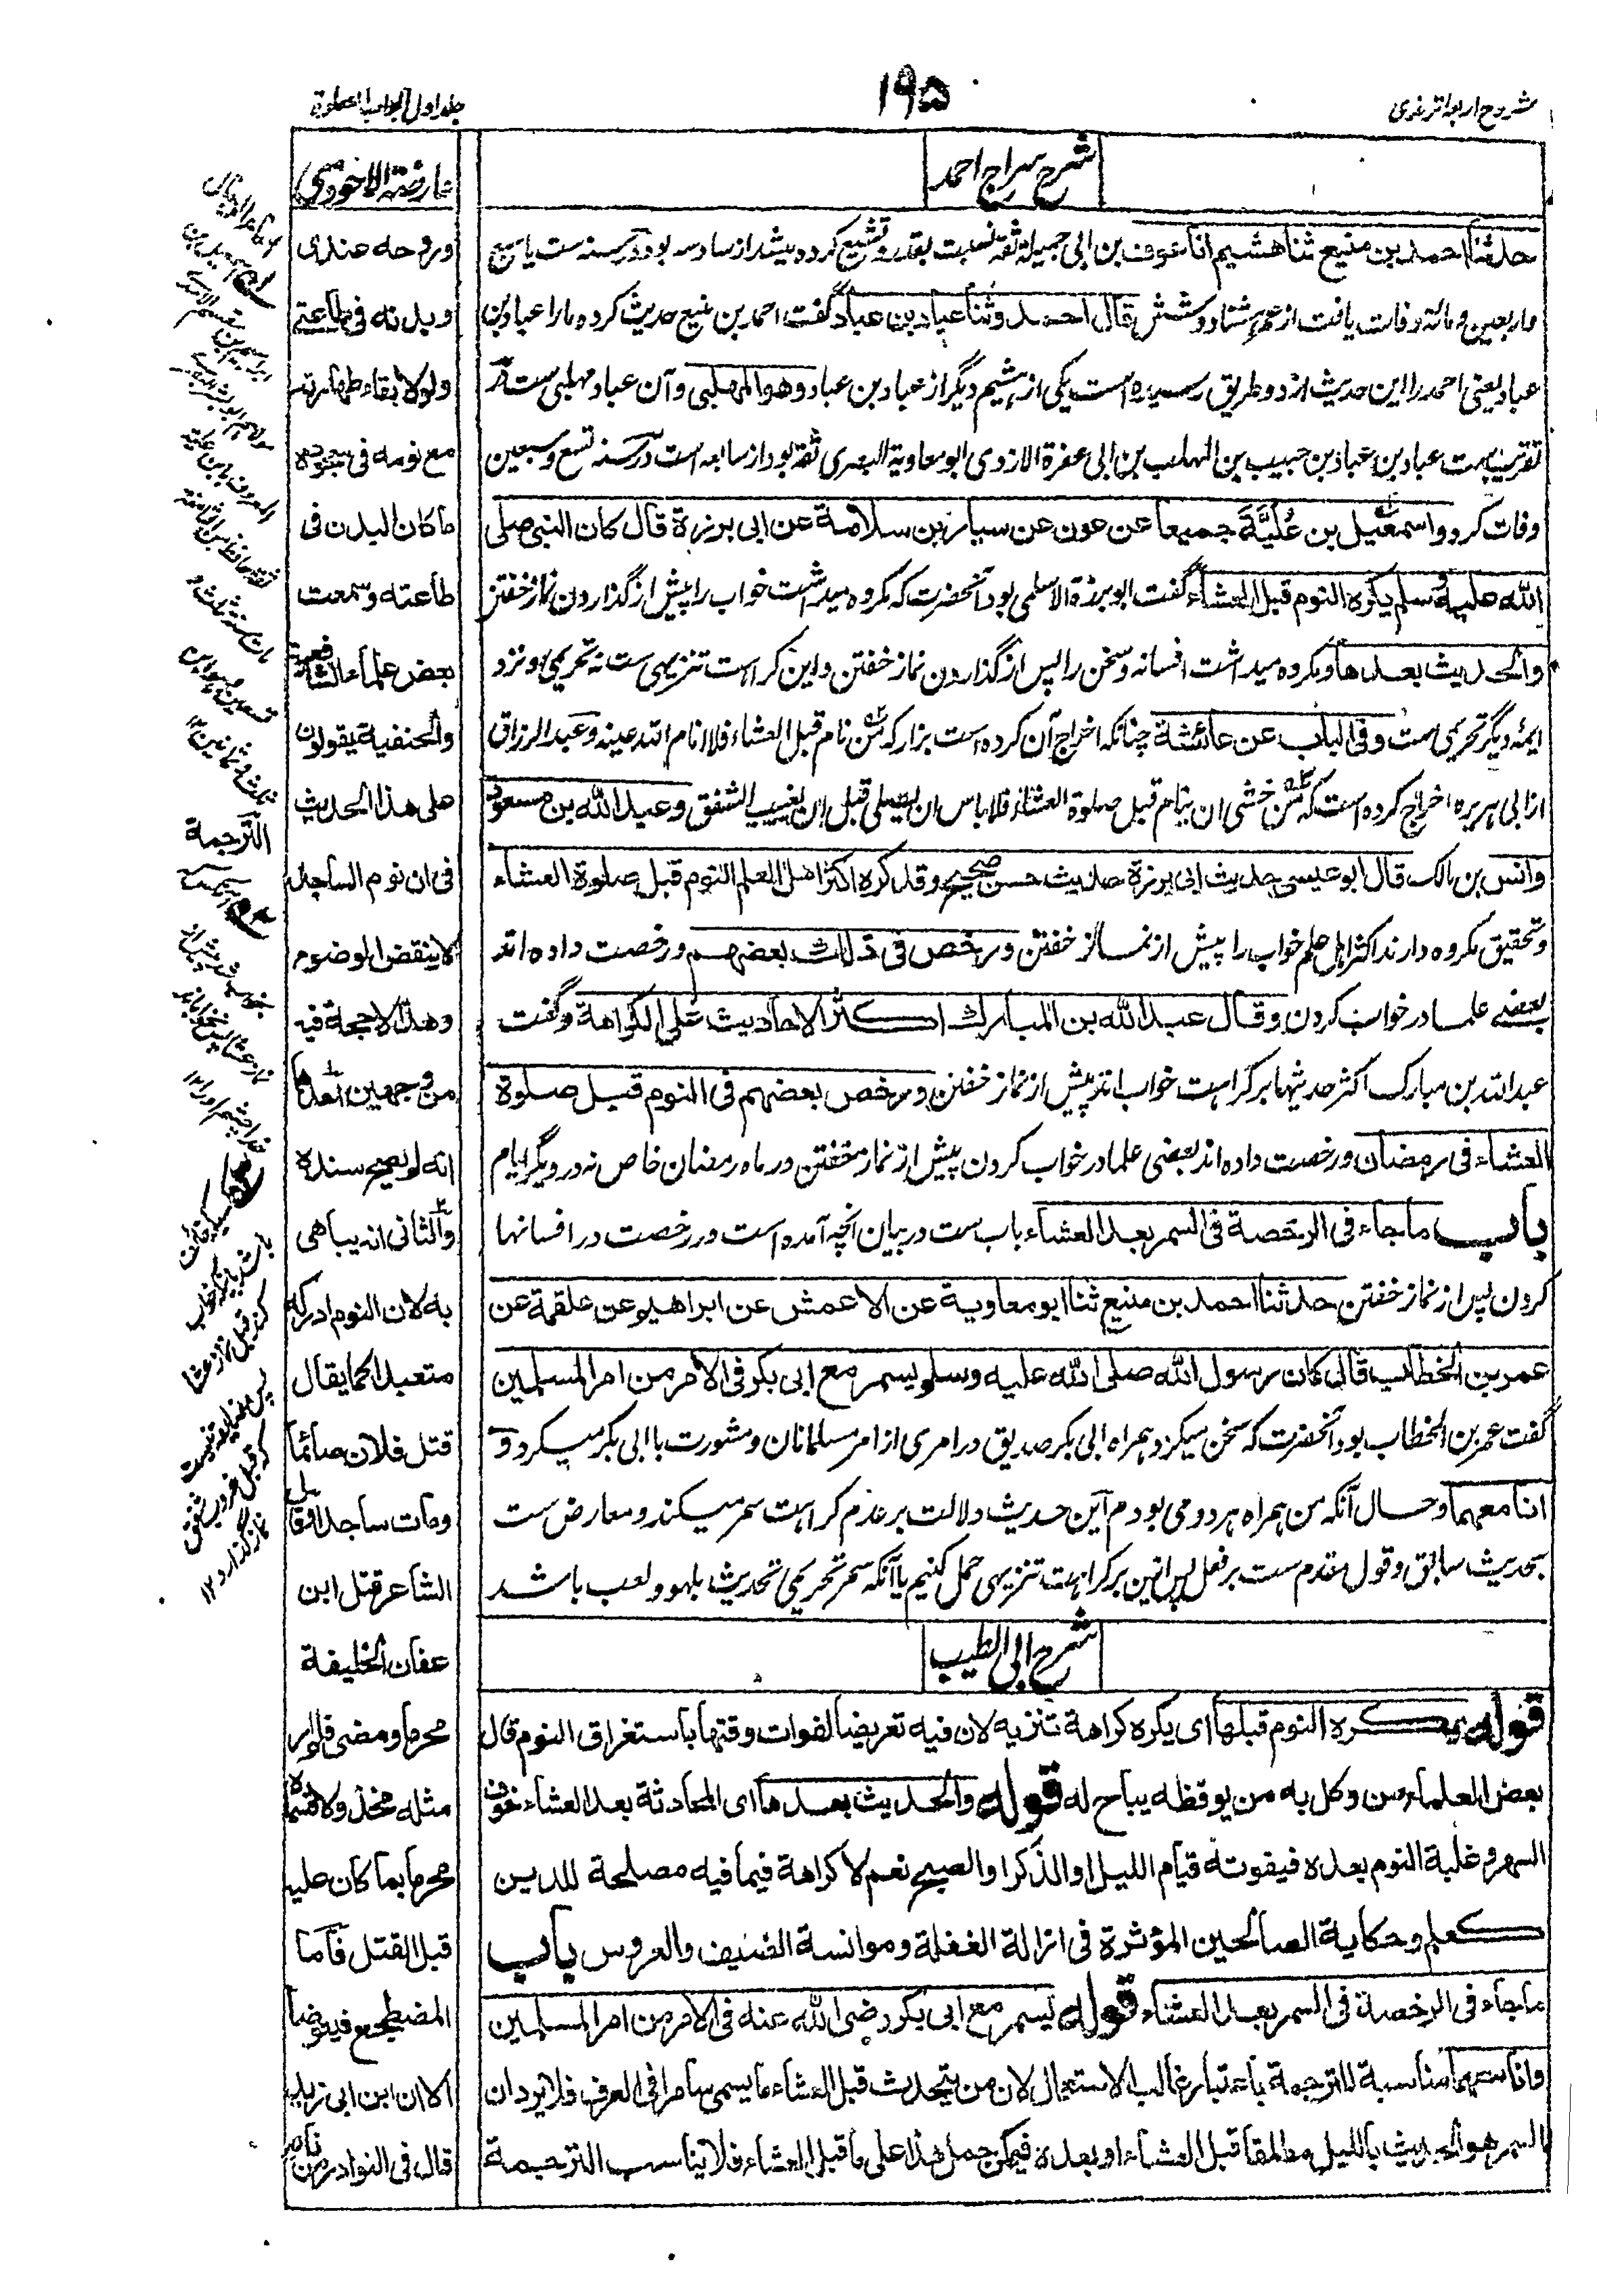 شروح اربعه ترمذی
۱۹۵
جلد اول ابواب الصلوة
شرح سراج احمد
حدثنا احمد بن منیع ثنا هشیم انا عوف بن ابی جمیله ثقه نسبت بقدر و تشیع کرده میشد از سادسه بود در سنه ست یا سبع
واربعین و مائة وفات یافت از عمر هشتاد و شش قال احمد وثنا عباد بن عباد گفت احمد بن منیع حدیث کرده مارا عباد بن
عباد یعنی احمد را این حدیث از دو طریق رسیده است یکی از هشیم دیگر از عباد بن عباد وهو المهلبی و آن عباد مهلبی ست در
تقریب ست عباد بن عباد بن حبیب بن المهلب بن ابی صفرة الازدی ابو معاویة البصری ثقه بود از سابعه است در سنه تسع و سبعین
وفات کرد و اسمعیل بن عُلَیَّةَ جمیعا عن عون عن سیار بن سلامة عن ابی برزة قال كان النبی صلی
الله علیه وسلم یکره النوم قبل العشاء گفت ابو برزة الاسلمی بود آنحضرت که مکروه میداشت خواب را پیش از گذاردن نماز خفتن
والحدیث بعدها و مکروه میداشت افسانه و سخن را پس از گذاردن نماز خفتن و این کراهت تنزیهی ست نه تحریمی و نزد
ایمه دیگر تحریمی ست وفی الباب عن عائشة چنانکه اخراج آن کرده است بزار که من نام قبل العشاء فلا انام الله عینه و عبد الرزاق
از ابی هریره اخراج کرده است که من خشی ان ینام قبل صلوة العشاء فلا باس ان یصلی قبل ان یغیب الشفق وعبد الله بن مسعود
وانس بن مالک قال ابو عیسی حدیث ابی برزة حدیث حسن صحیح وقد کره اکثر اهل العلم النوم قبل صلوة العشاء
و تحقیق مکروه دارند اکثر اهل علم خواب را پیش از نماز خفتن ورخص فی ذلك بعضهم و رخصت داده اند
بعضی علما در خواب کردن وقال عبد الله بن المبارك اکثر الاحادیث علی الکراهة و گفت
عبد الله بن مبارک اکثر حدیثها بر کراهت خواب اند پیش از نماز خفتن ورخص بعضهم فی النوم قبل صلوة
العشاء فی رمضان و رخصت داده اند بعضی علما در خواب کردن پیش از نماز خفتن در ماه رمضان خاص نه در دیگر ایام
باب ماجاء فی الرخصة فی السمر بعد العشاء باب ست در بیان آنچه آمده است در رخصت در افسانها
کردن پس از نماز خفتن حدثنا احمد بن منیع ثنا ابو معاویة عن الاعمش عن ابراهیم عن علقمة عن
عمر بن الخطاب قال کان رسول الله صلی الله علیه وسلم یسمر مع ابی بکر فی الامر من امر المسلمین
گفت عمر بن الخطاب بود آنحضرت که سخن میکرد همراه ابی بکر صدیق در امری از امر مسلمانان و مشورت با ابی بکر میکرد و
انا معهما و حال آنکه من همراه هر دو می بودم این حدیث دلالت بر عدم کراهت سمر میکند و معارض ست
بحدیث سابق و قول مقدم ست بر فعل پس این بر کراهت تنزیهی حمل کنیم یا آنکه سمر تحریمی تحدیث بلهو و لعب باشد
شرح ابی الطیب
قوله یکره النوم قبلها ای یکره کراهة تنزیه لان فیه تعریضا لفوات وقتها باستغراق النوم قال
بعض العلماء من وکل به من یوقظه یباح له قوله والحدیث بعدها ای المحادثة بعد العشاء خوف
السهر وغلبة النوم بعده فیفوته قیام اللیل او الذکر او الصبح نعم لا کراهة فیما فیه مصلحة للدین
کعلم وحکایة الصالحین المؤثرة فی ازالة الغفلة وموانسة الضیف والعروس باب
ماجاء فی الرخصة فی السمر بعد العشاء قوله یسمر مع ابی بکر رضی الله عنه فی الامر من امر المسلمین
وانا معهما مناسبة للترجمة باعتبار غالب الاستعمال لان من یتحدث قبل العشاء ما یسمی سامرا فی العرف فلا یرد ان
السمر هو الحدیث باللیل مطلقا قبل العشاء او بعده فیمکن حمل هذا علی ما قبل العشاء فلا یناسب الترجمة
عارضة الاحوذی
وروحه عندی
وبدنه فی طاعتی
ولولا بقاء طهارته
مع نومه فی سجوده
ما کان البدن فی
طاعته وسمعت
بعض علماء الشافعیة
والحنفیة یقولون
علی هذا الحدیث
فی ان نوم الساجد
لا ینقض الوضوء
وهذا لا حجة فیه
من وجهین احدها
انه لم یصح سنده
والثانی انه یباهی
به لان النوم ادرکه
متعبدا کما یقال
قتل فلان صائما
ومات ساجدا وقال
الشاعر قتل ابن
عفان الخلیفة
محرما ومضی فلم ار
مثله مخذولا
محرما بما کان علیه
قبل القتل فاما
المضطجع فیتوضأ
الا ان ابن ابی زید
قال فی النوادر من نام
الترجمة